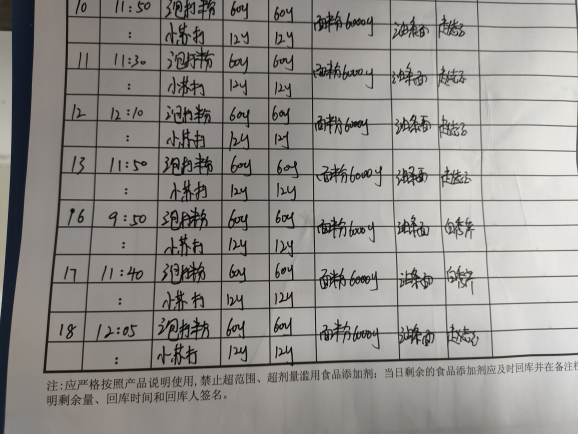 10 11:50 泡打粉 60g 60g 面粉6000g 油条面
: 小苏打 12g 12g
11 11:30 泡打粉 60g 60g 面粉6000g 油条面
: 小苏打 12g 12g
12 12:10 泡打粉 60g 60g 面粉6000g 油条面
: 小苏打 12g 12g
13 11:50 泡打粉 60g 60g 面粉6000g 油条面
: 小苏打 12g 12g
16 9:50 泡打粉 60g 60g 面粉6000g 油条面
: 小苏打 12g 12g
17 11:40 泡打粉 60g 60g 面粉6000g 油条面
: 小苏打 12g 12g
18 12:05 泡打粉 60g 60g 面粉6000g 油条面
: 小苏打 12g 12g
注:应严格按照产品说明使用,禁止超范围、超剂量滥用食品添加剂;当日剩余的食品添加剂应及时回库并在备注
明剩余量、回库时间和回库人签名。